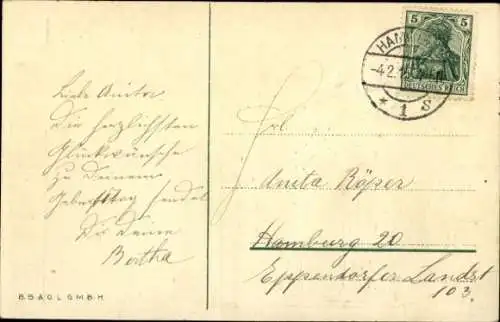 Liebe Anita.
Die herzlichsten
Glückwünsche
zu Deinem
Geburtstag sendet
Dir Deine
Bertha
B.S.A.O.L. G.M.B.H.
5 5
DEUTSCHES REICH
HAM
-4.2.1
* 1 S
Frl.
Anita Röper
Hamburg 20
Eppendorfer Landst
103.